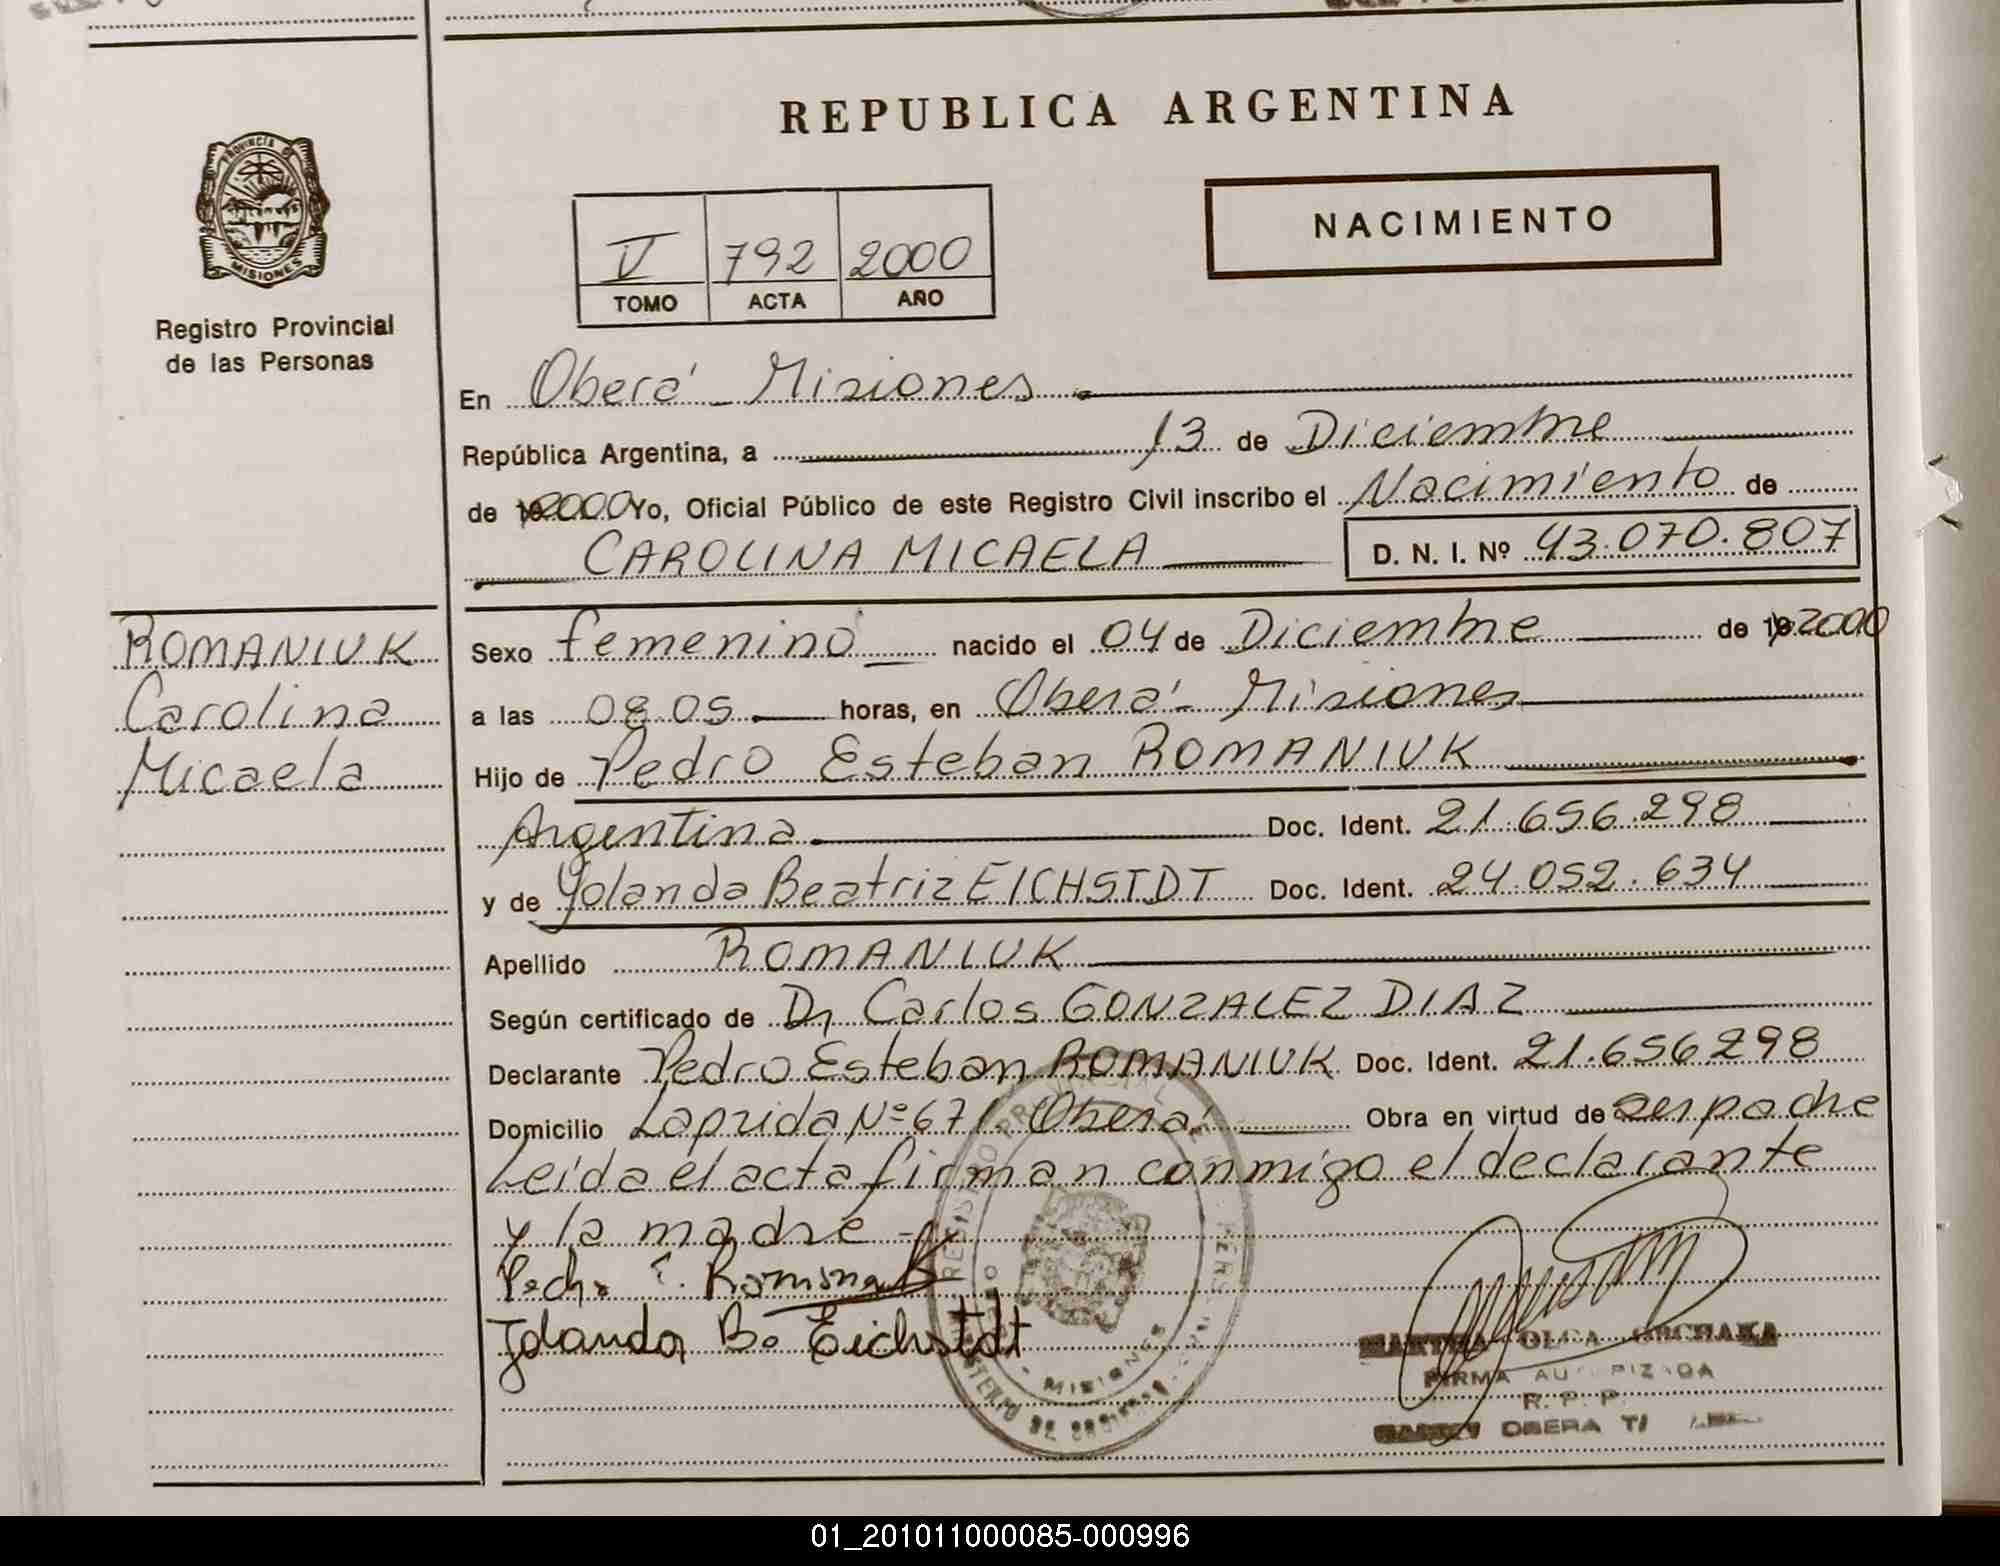 REPUBLICA ARGENTINA
PROVINCIA DE
MISIONES
Registro Provincial
de las Personas
NACIMIENTO
V 792 2000
TOMO ACTA AÑO
En Oberá - Misiones
República Argentina, a 13 de Diciembre
de 2000 Yo, Oficial Público de este Registro Civil inscribo el Nacimiento de
CAROLINA MICAELA D. N. I. Nº 43.070.807
ROMANIUK
Carolina
Micaela
Sexo femenino nacido el 04 de Diciembre de 2000
a las 08.05 horas, en Oberá - Misiones
Hijo de Pedro Esteban ROMANIUK
Argentina Doc. Ident. 21.656.298
y de Yolanda Beatriz EICHSTDT Doc. Ident. 24.052.634
Apellido ROMANIUK
Según certificado de Dr Carlos GONZALEZ DIAZ
Declarante Pedro Esteban ROMANIUK Doc. Ident. 21.656298
Domicilio Laprida Nº 671 Oberá Obra en virtud de ser padre
Leída el acta firman conmigo el declarante
y la madre
Pedro E. Romaniuk
Yolanda B. Eichstdt
MARTHA OLGA
FIRMA AUTORIZADA
R. P. P.
OBERA
MISIONES
01_201011000085-000996